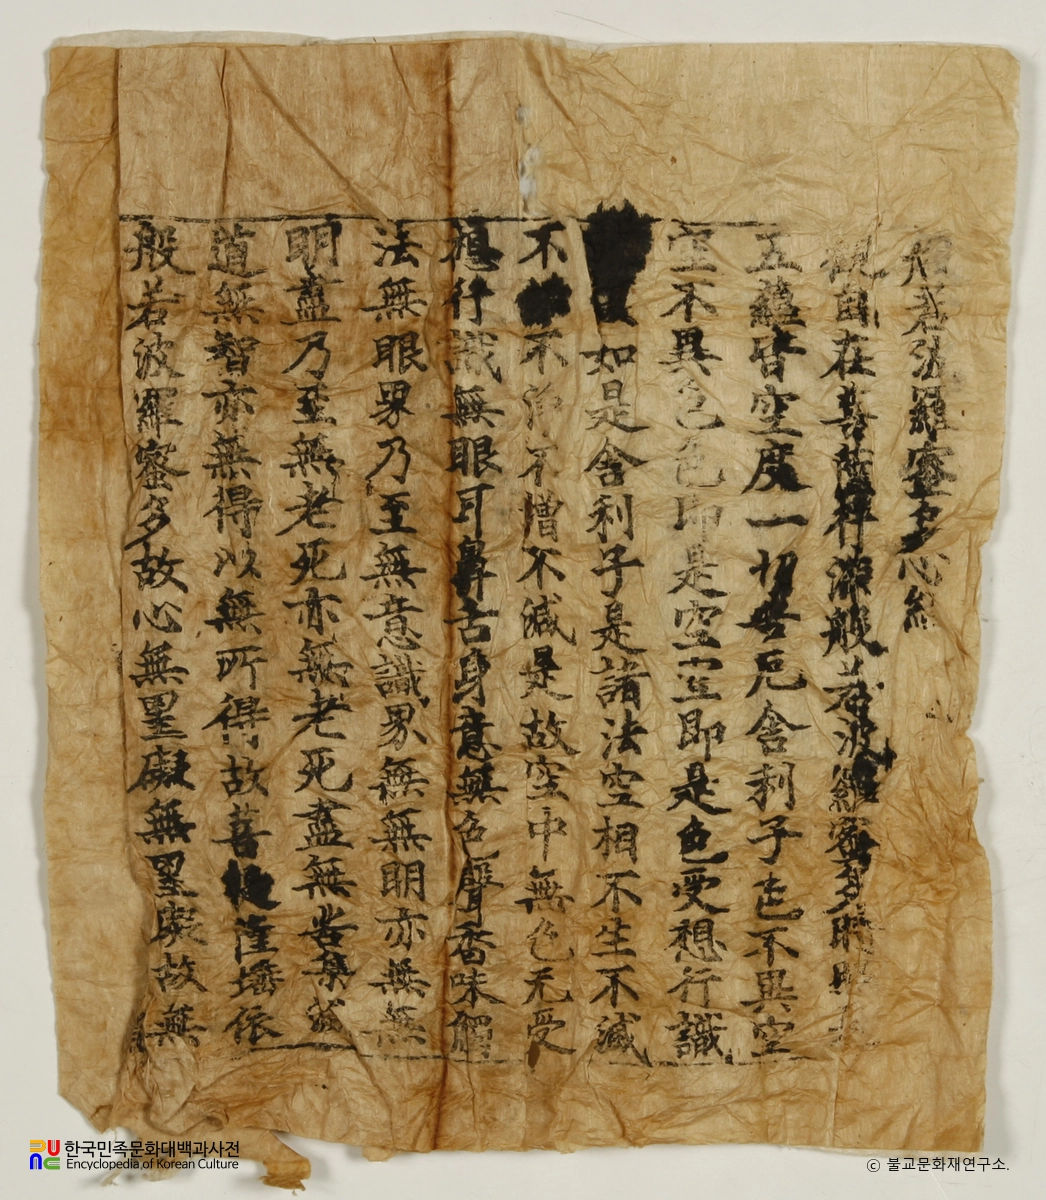 般若波羅蜜多心經
觀自在菩薩行深般若波羅蜜多時照見
五蘊皆空度一切苦厄舍利子色不異空
空不異色色即是空空即是色受想行識
如是舍利子是諸法空相不生不滅
不不淨不增不減是故空中無色无受
想行識無眼耳鼻舌身意無色聲香味觸
法無眼界乃至無意識界無無明亦無無
明盡乃至無老死亦無老死盡無苦集滅
道無智亦無得以無所得故菩提薩埵依
般若波羅蜜多故心無罣礙無罣礙故無
한국민족문화대백과사전
Encyclopedia of Korean Culture
ⓒ 불교문화재연구소.